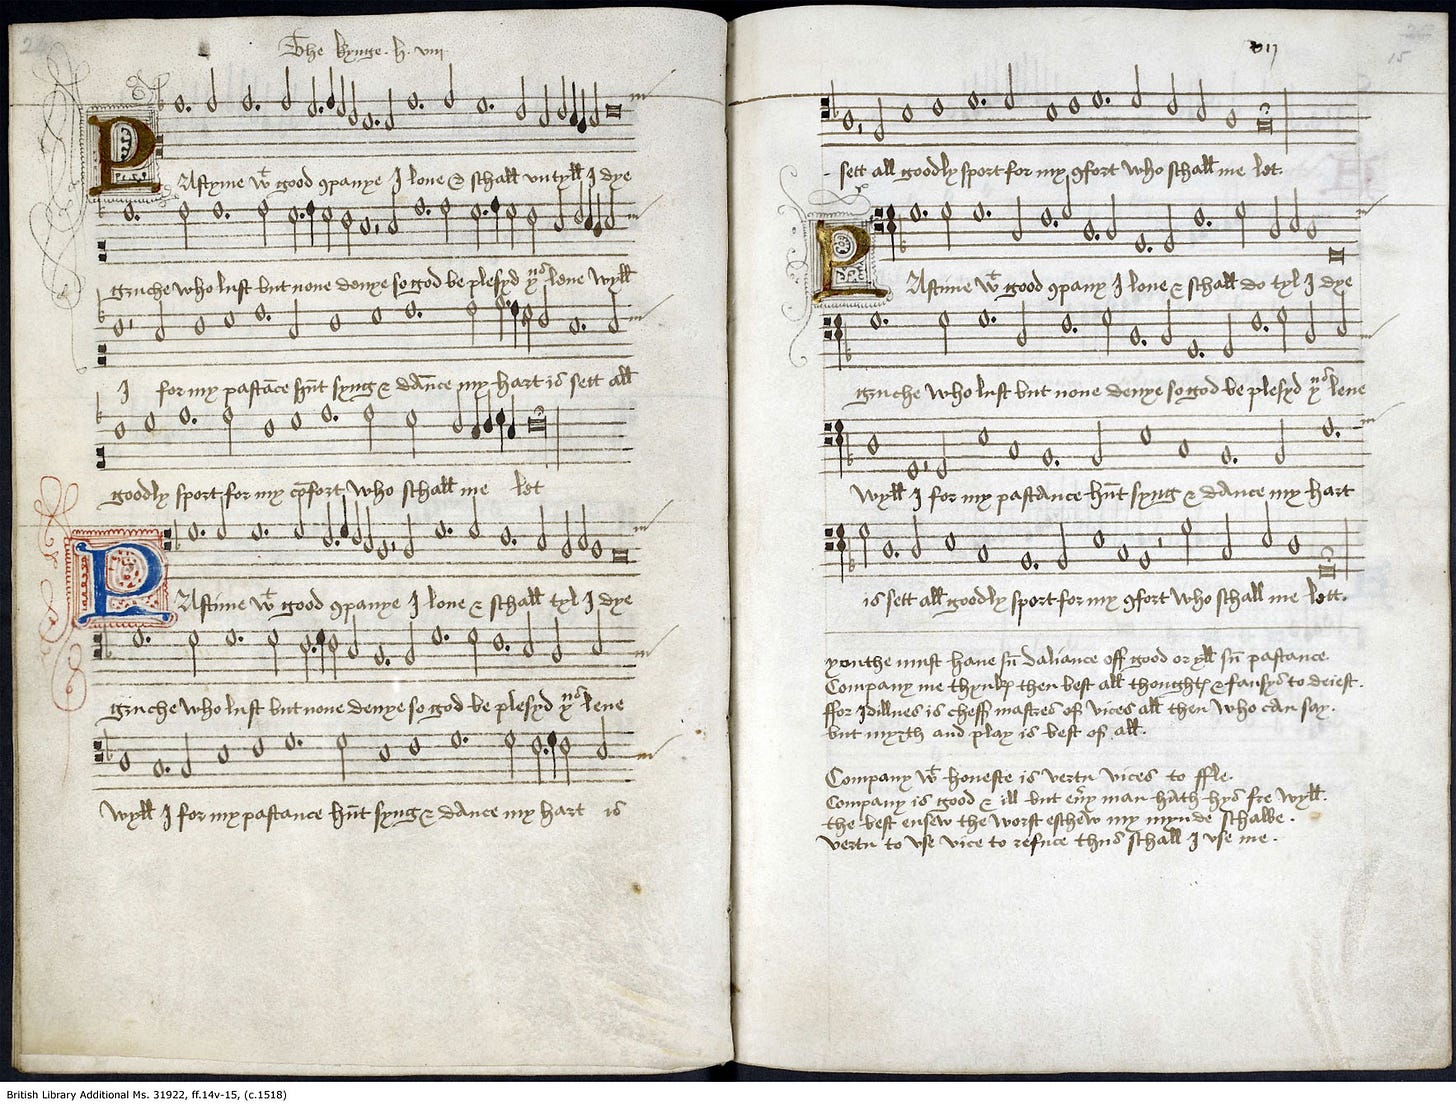 The kynge .h. viii
PAstyme wt good 9panye I loue & schall vntyll I dye
gruche who lust but none denye so god be plesyd yus leue wyll
I for my pastāce hūt syng & dāuce my hart is sett all
goodly sport for my cōfort who schall me let
PAstime wt good 9panye I loue & schall tyl I dye
gruche who lust but none denye so god be plesyd yus leue
wyll I for my pastance hūt syng & dance my hart is
15
sett all goodly sport for my 9fort who schall me let.
PAstime wt good 9pany I loue & schall do tyl I dye
gruche who lust but none denye so god be plesyd yus leue
wyll I for my pastance hūt syng & dance my hart
is sett all goodly sport for my 9fort who schall me lett.
youthe must haue sū daliance off good or yll sū pastance.
Company me thynkꝭ then best all thoughtꝭ & fansys to deiest.
ffor Idillnes is cheff mastres of vices all then who can say.
but myrth and play is best of all.
Company wt honeste is vertu vices to ffle.
Company is good & ill but eūy man hath hys fre wyll.
the best ensew the worst eschew my mynde schalbe.
vertu to vse vice to refuce thus schall I vse me.
British Library Additional Ms. 31922, ff.14v-15, (c.1518)